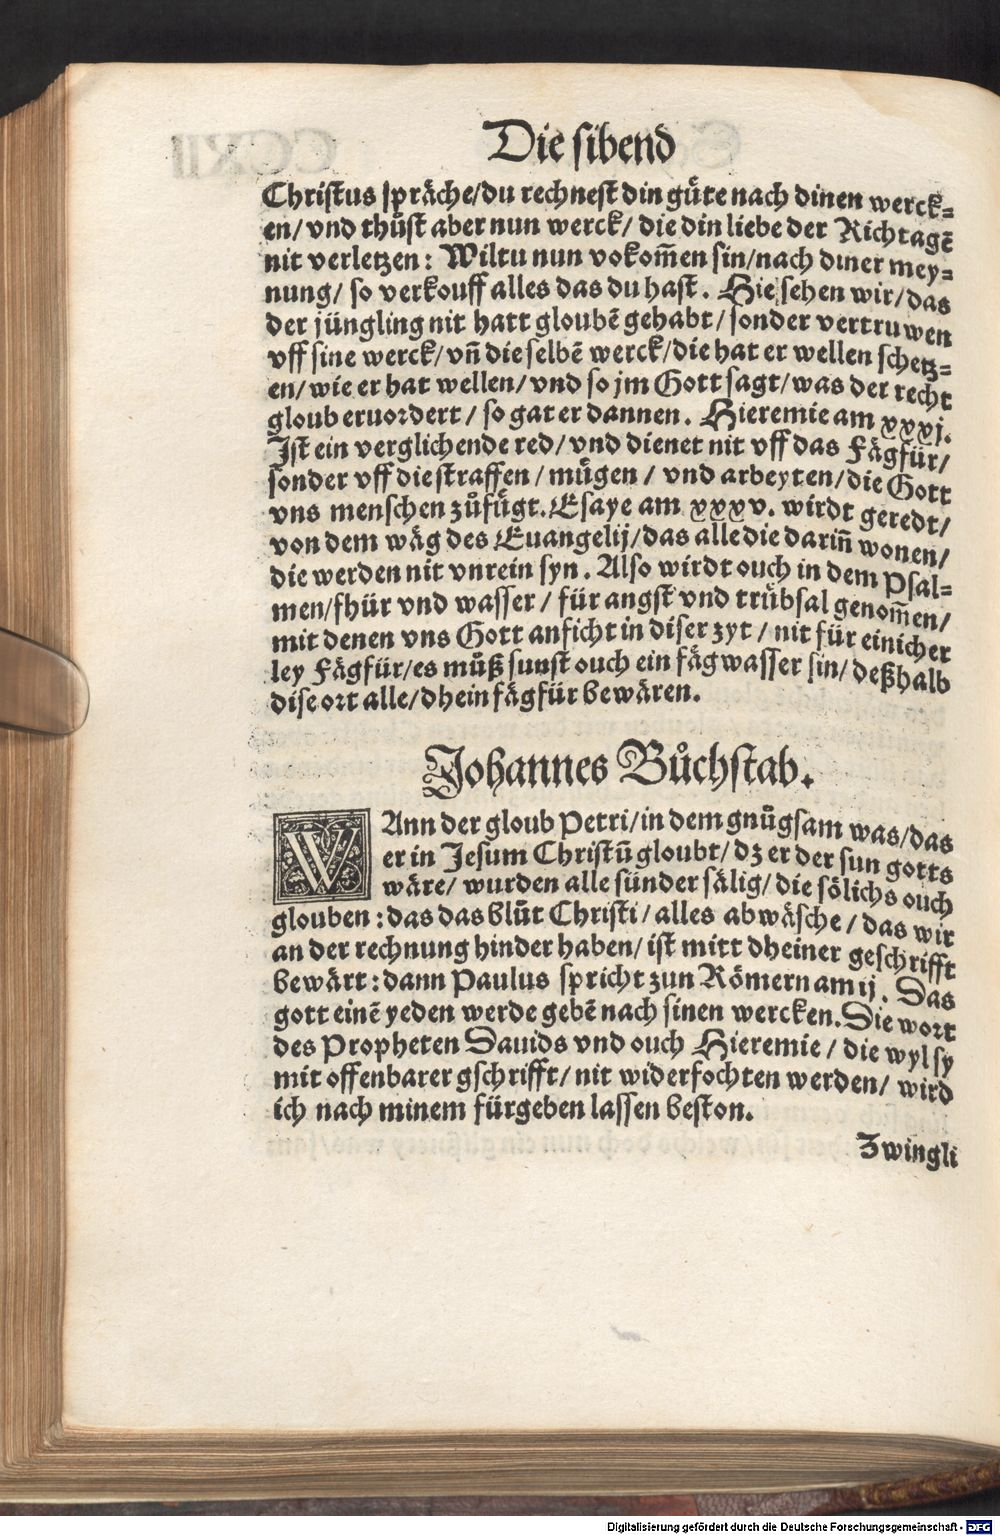 Die sibend
Christus spräche/du rechnest din gůte nach dinen werck⸗
en/ vnd thůst aber nun werck/ die din liebe der Richtagē
nit verletzen: Wiltu nun vokom̄en sin/nach diner mey⸗
nung/ so verkouff alles das du hast. Hie sehen wir/das
der jüngling nit hatt gloubē gehabt/ sonder vertruwen
vff sine werck/ vn̄ die selbē werck/die hat er wellen schetz⸗
en/ wie er hat wellen/ vnd so jm Gott sagt/ was der recht
gloub eruordert/ so gat er dannen. Hieremie am xxxj.
Ist ein verglichende red/ vnd dienet nit vff das Fägfür/
sonder vff die straffen/ mügen/ vnd arbeyten/die Gott
vns menschen zůfügt. Esaye am xxxv. wirdt geredt/
von dem wäg des Euangelij/das alle die darin̄ wonen/
die werden nit vnrein syn. Also wirdt ouch in dem Psal⸗
men/fhür vnd wasser/ für angst vnd trübsal genom̄en/
mit denen vns Gott anficht in diser zyt/ nit für einicher
ley Fägfür/es můß sunst ouch ein fägwasser sin/ deßhalb
dise ort alle/dhein fägfür bewären.
Johannes Bůchstab.
WAnn der gloub Petri/in dem gnůgsam was/das
er in Jesum Christū gloubt/ dz er der sun gotts
wäre/ wurden alle sünder sälig/ die sölichs ouch
glouben: das das blůt Christi/ alles abwäsche/ das wir
an der rechnung hinder haben/ ist mitt dheiner geschrifft
bewärt: dann Paulus spricht zun Römern am ij. Das
gott einē yeden werde gebē nach sinen wercken. Die wort
des Propheten Dauids vnd ouch Hieremie/ die wyl sy
mit offenbarer gschrifft/ nit widerfochten werden/ wird
ich nach minem fürgeben lassen beston.
Zwingli
Digitalisierung gefördert durch die Deutsche Forschungsgemeinschaft - DFG